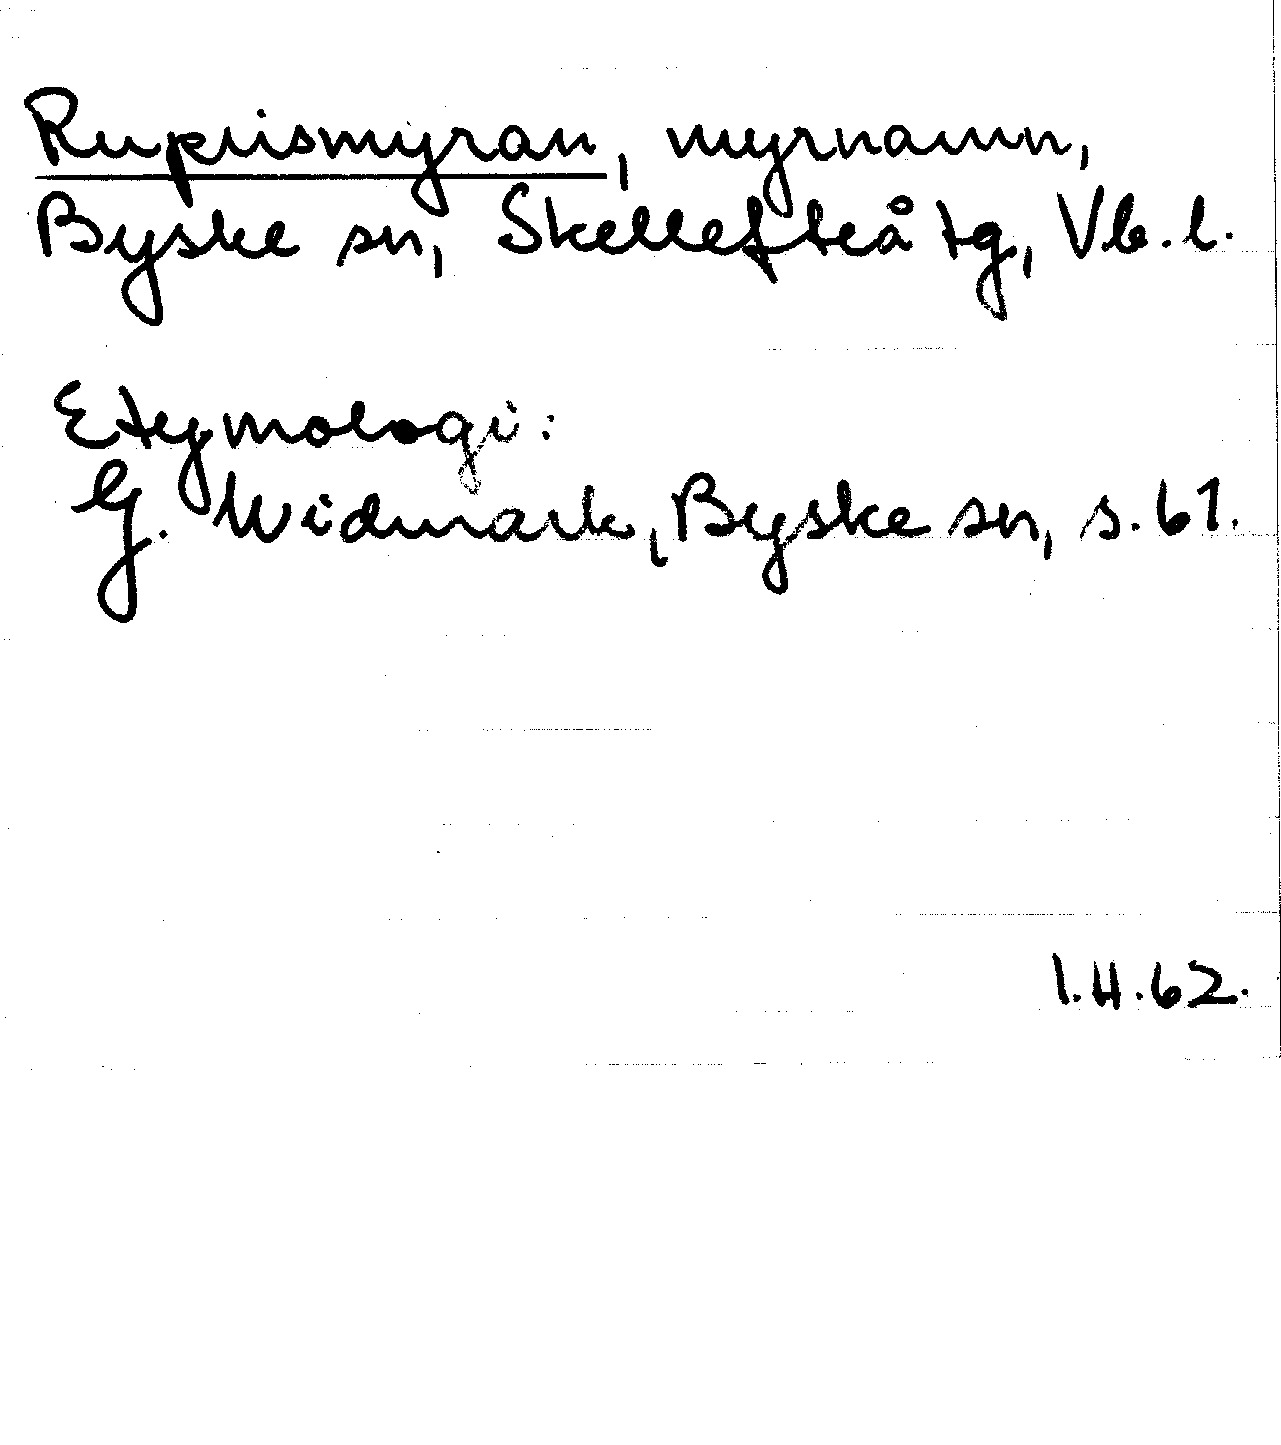 Ruprismyran, myrnamn,
Byske sn, Skellefteå tg, Vb. l.
Etymologi:
G. Widmark, Byske sn, s. 61.
1.H.62.